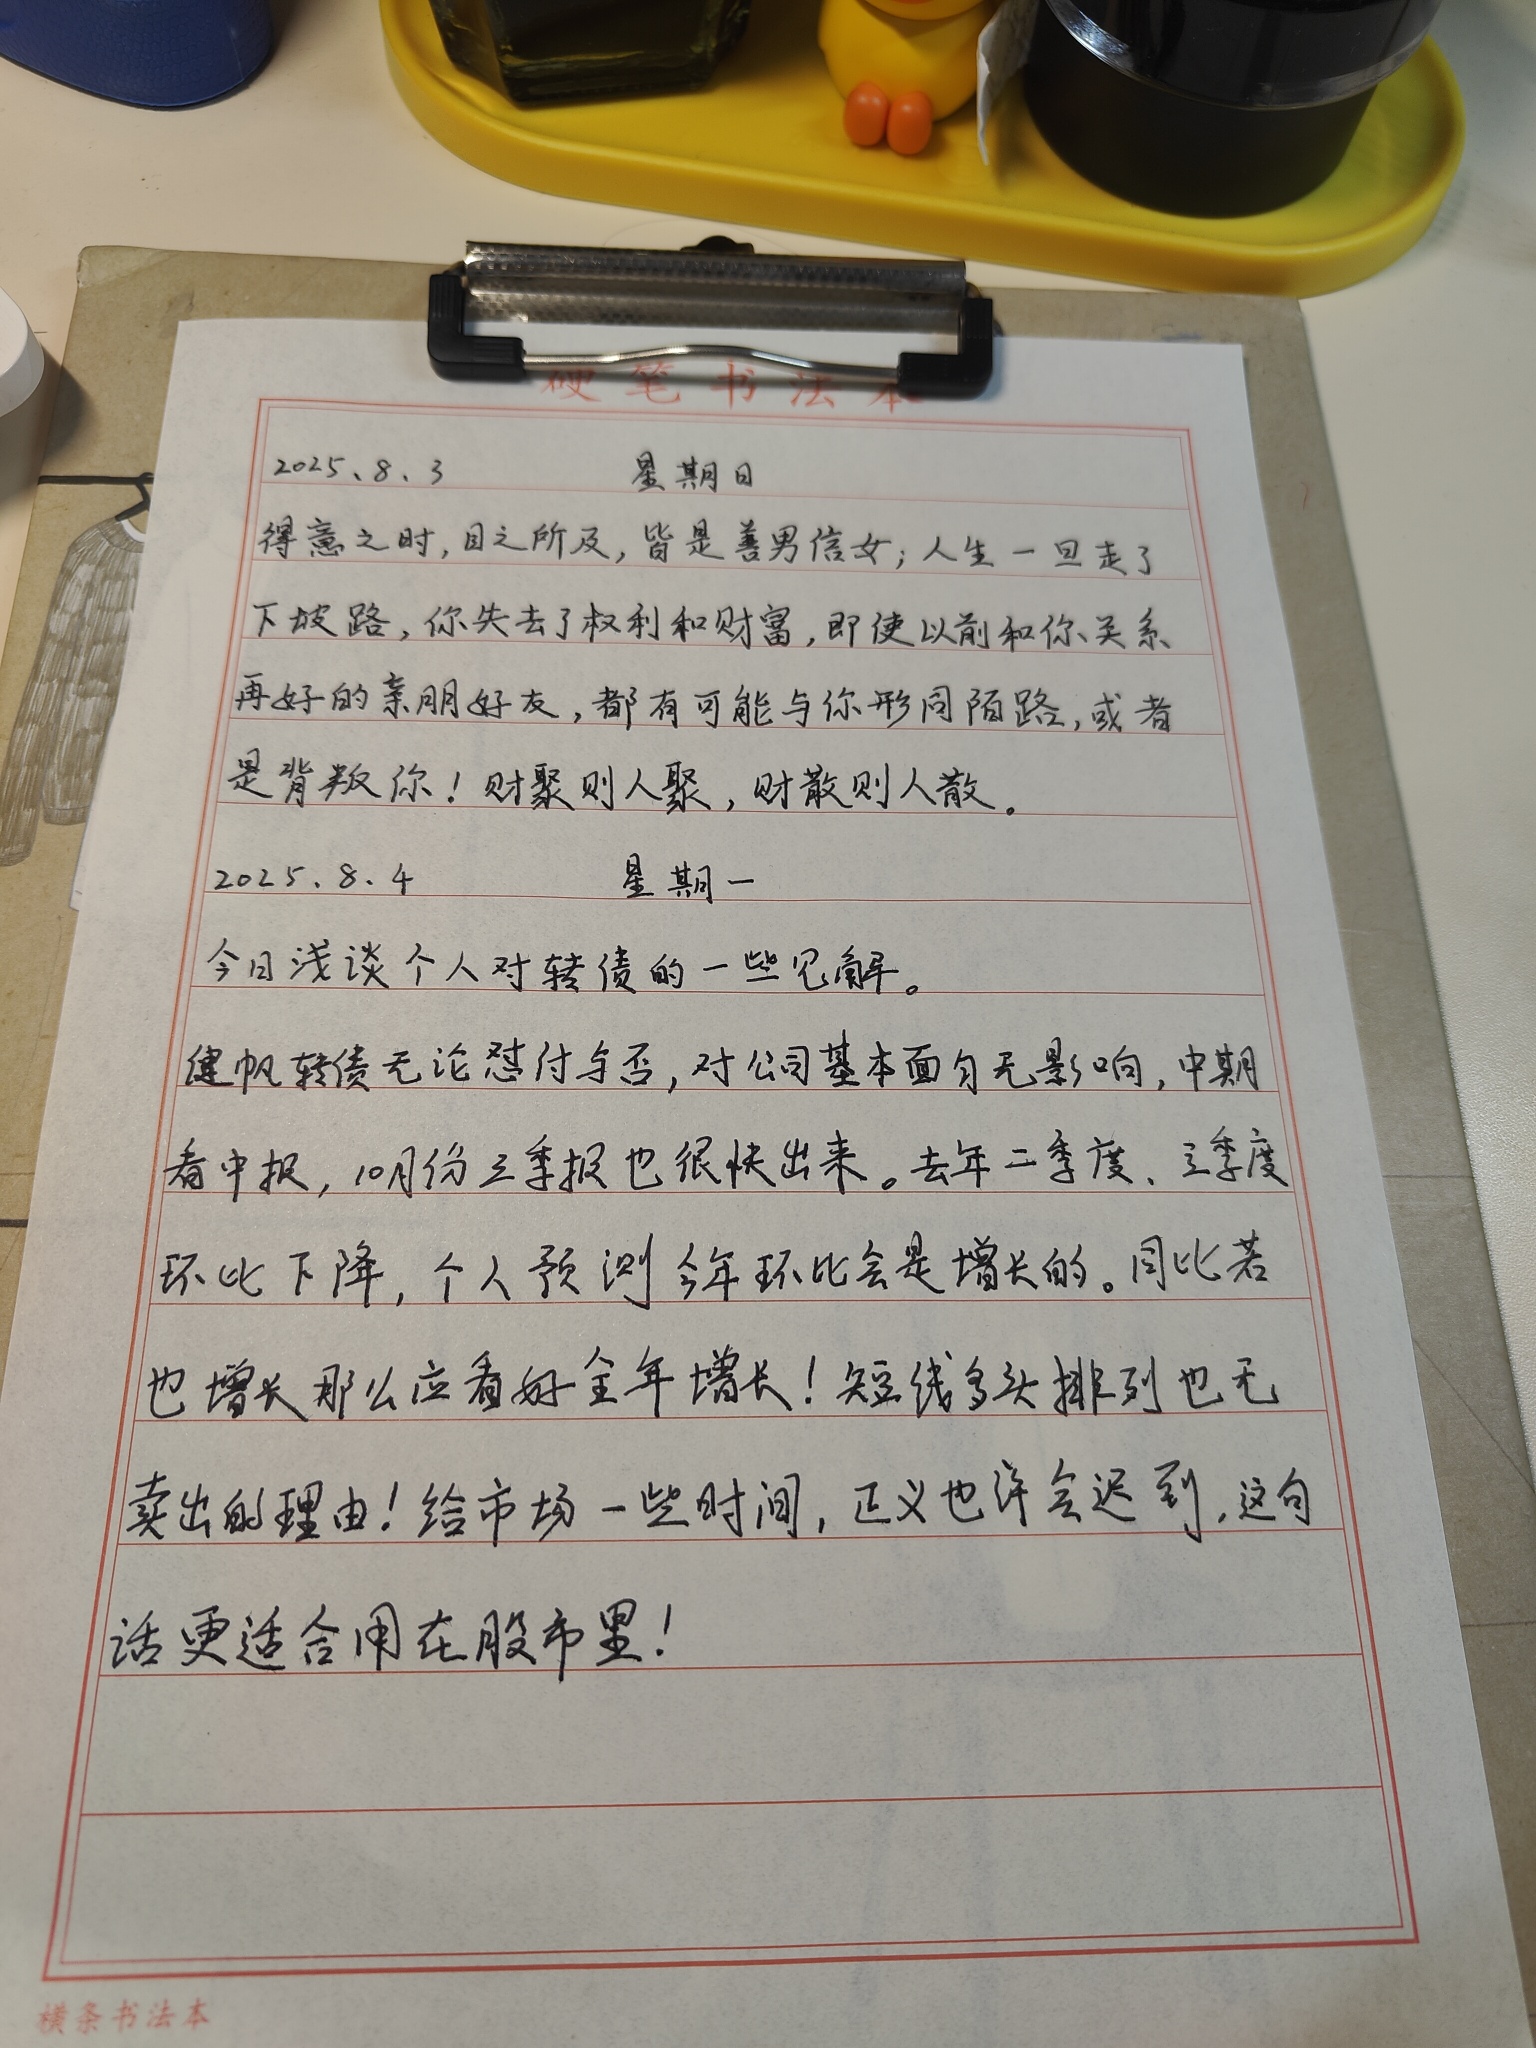 硬笔书法本
2025.8.3 星期日
得意之时,目之所及,皆是善男信女;人生一旦走了
下坡路,你失去了权利和财富,即使以前和你关系
再好的亲朋好友,都有可能与你形同陌路,或者
是背叛你!财聚则人聚,财散则人散。
2025.8.4 星期一
今日浅谈个人对转债的一些见解。
健帆转债无论怼付与否,对公司基本面匀无影响,中期
看中报,10月份三季报也很快出来。去年二季度、三季度
环比下降,个人预测今年环比会是增长的。同比若
也增长那么应看好全年增长!短线多头排列也无
卖出的理由!给市场一些时间,正义也许会迟到,这句
话更适合用在股市里!
横条书法本